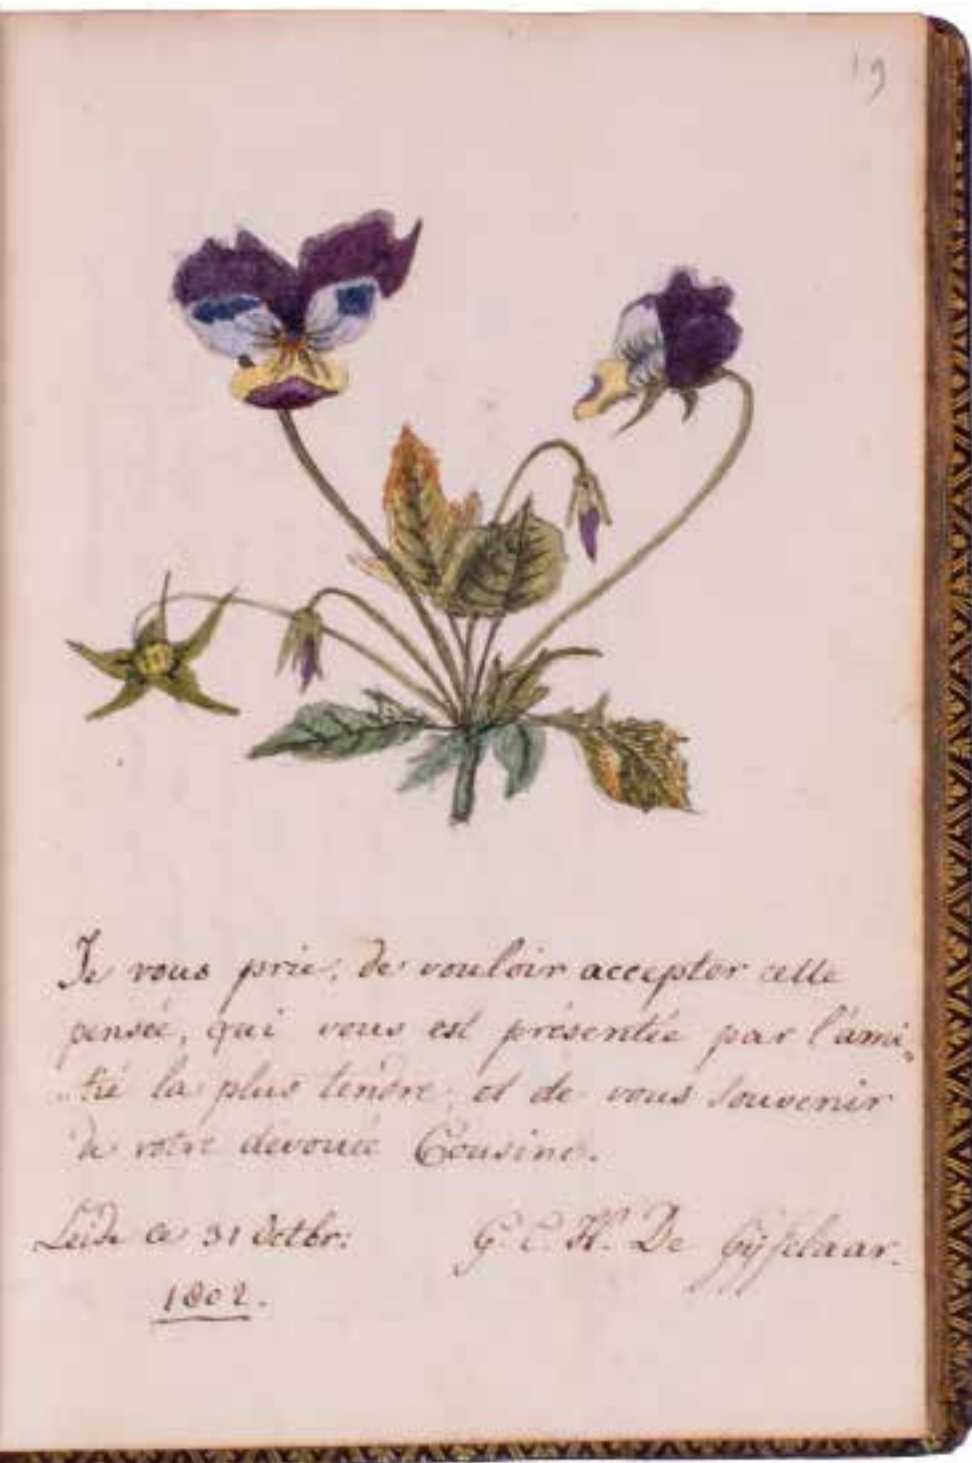 19
Je vous prie, de vouloir accepter cette
pensée, qui vous est présentée par l'ami„
„tié la plus tendre, et de vous souvenir
de votre devouée Cousine.
Leide ce 31 Octbr:
1802.
G. C. H. De Gijselaar.